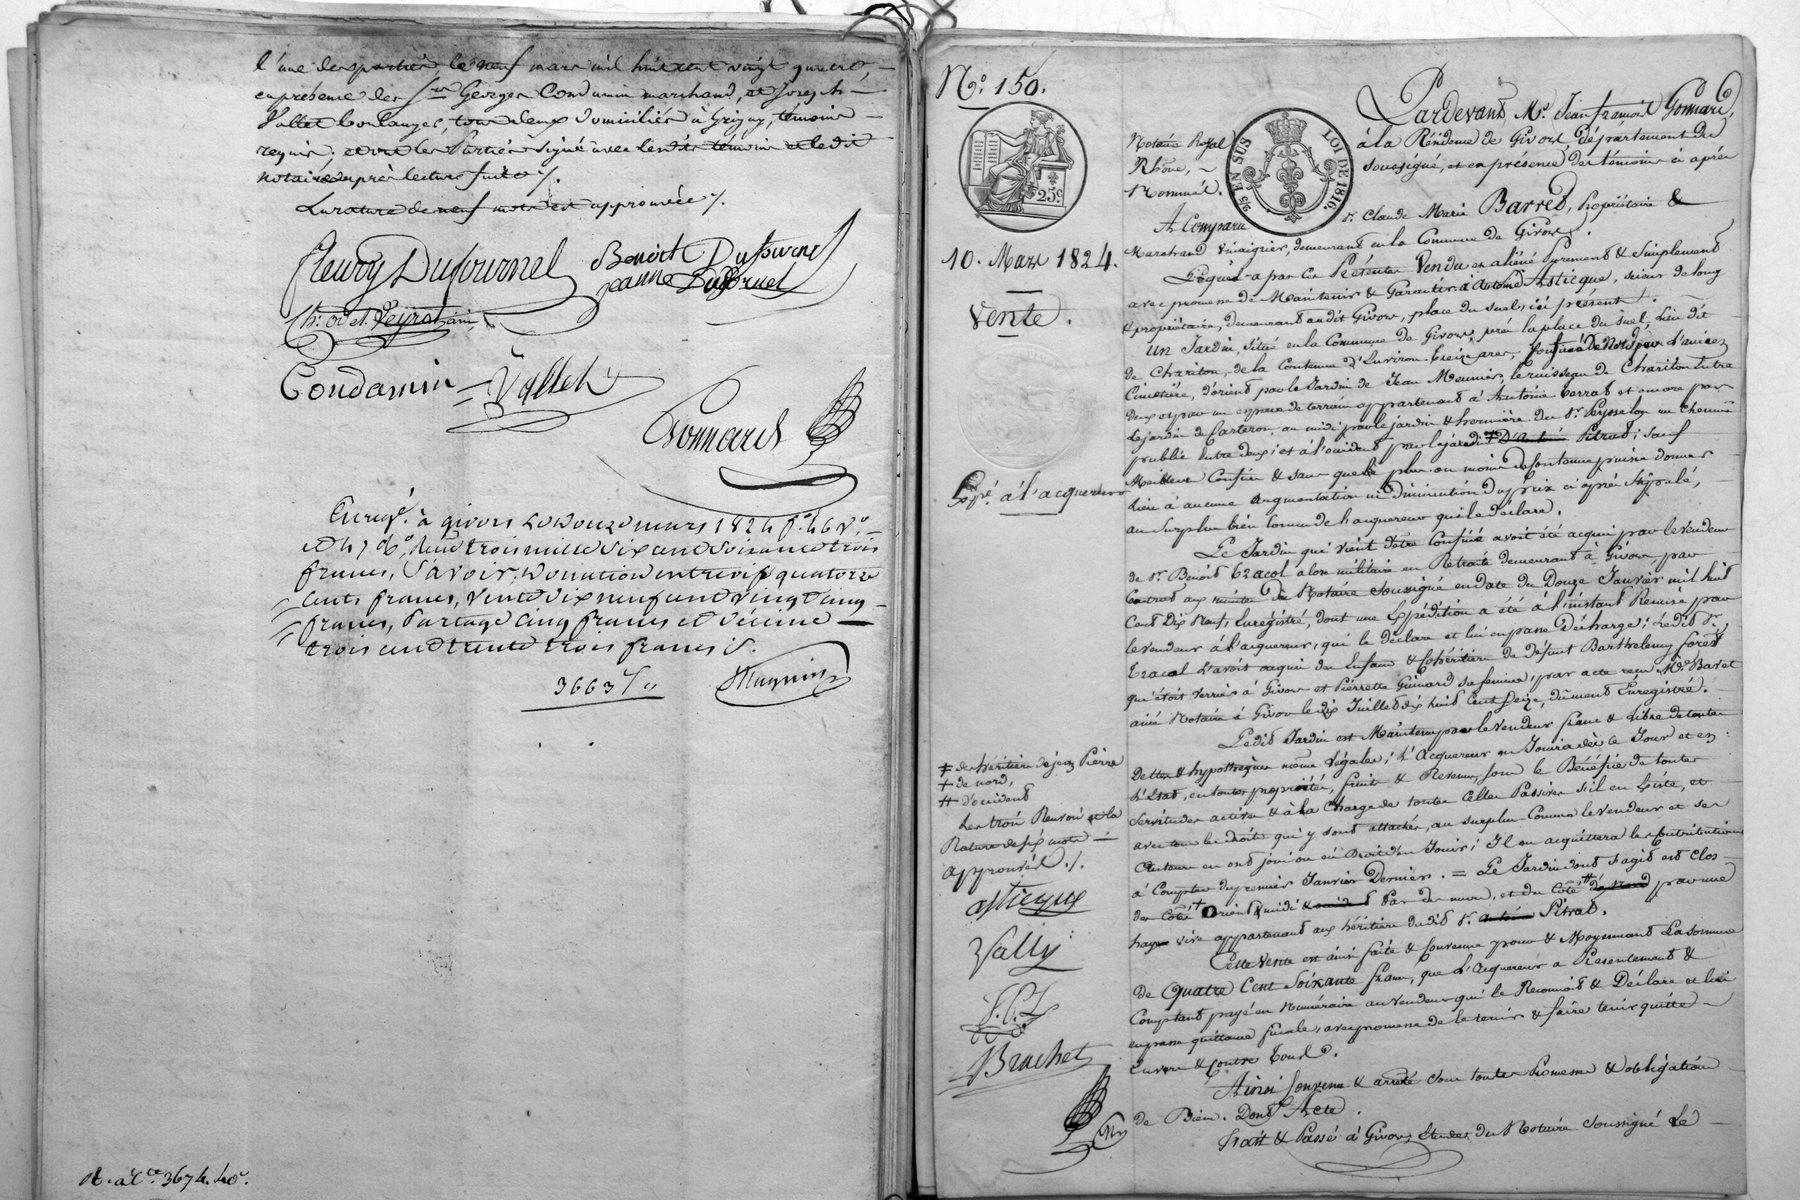 l'une des parties, le neuf mars mil huit cent vingt quatre,
en présence des Srs Georges Condamin marchand, et Joseph
Vallet boulanger, tous deux domiciliés à Grigny, témoins
requis, et ont les Parties signé avec lesdits témoins et ledit
notaire après lecture faite ./.
Lurature de neuf mots est approuvée ./.
fleury Dufournel
Benoit Dufournel
Jeanne Dufournel
Condamin = Vallet
Gonnard
Enregé. à givors le douze mars 1824 fo. 46 Vo.
et 47 Ro. Reçu trois mille six cent soixante trois
francs, Savoir, Donation entrevifs quatorze
cents francs, vente dix neuf cent vingt cinq
francs, Partage cinq francs et décime
trois cent trente trois francs
3663 f "
R. à l' 3674. 40c.
No. 150.
25c
25c. EN SUS
LOI DE 1816.
Pardevant Me. Jean françois Gonnard,
Notaire Royal à la Résidence de Givors Département du
Rhône, soussigné, et en présence des témoins ci après
Nommés.
A Comparu Sr. Claude Marie Barret, Propriétaire &
Marchand Vinaigrier, demeurant en la Commune de Givors.
10. Mars 1824.
Lequel a par ces Présentes Vendu et aliéné Purement & Simplement
avec promesse de Maintenir & Garantir à Antoine Asticque, scieur de long
& propriétaire, demeurant audit Givors, place du suel, ici présent.
Vente.
Un Jardin, situé en la Commune de Givors, près la place du suel, Lieu dit
de Chariton, de la Contenue d'Environ treize ares, Confiné De Nord par l'ancien
Cimetière, d'orient par le Jardin de Jean Meunier, le ruisseau de Chariton entre
deux et par un espace de terrain appartenant à Antoine Terrat et encore par
Lejardin de Carteron, au midi par le jardin & hermière du Sr. Peysselon un Chemin
public entre deux; et à l'occident par le jardin Pitrat; sauf
Meilleurs Confins & sans que le plus ou moins de contenue puisse donner
Expé. à l'acquereur
Lieu à aucune augmentation ni Diminution du prix ci après stipulé,
au Surplus bien connu de l'acquereur qui le déclare.
Le Jardin qui vient d'être Confiné avoit été acquis par le vendeur
de Sr. Benoit Tracol alors militaire en Retraite demeurant à Givors par
Contrat aux minutes du Notaire Soussigné en date du Douze Janvier mil huit
Cent Dix Neuf, Enregistré, dont une Expédition a été à l'instant Remise par
le vendeur à l'acquereur, qui le déclare et lui en passe Décharge; Ledit Sr.
Tracol l'avoit acquis des Enfans & Cohéritiers de défunt Barthelemy
qu'étoit Verrier à Givors et Pierrette Guinard sa femme, par acte reçu Me. Baret
ainé Notaire à Givors le dix Juillet dix huit Cent Seize, dûment Enregistré.
Ledit Jardin est Maintenu par le vendeur franc & libre de toutes
Dettes & hypothèques même légales; L'Acquereur en Jouira dès ce Jour et en
l'état, en toutes propriétés, fruits & Revenus, sous le Bénéfice de toutes
Servitudes actives & à la charge de toutes Celles Passives s'il en Existe, et
avec tous les droits qui y sont attachés, au surplus Comme le vendeur et ses
Auteurs en ont joui ou eû Droit d'en Jouir; Il en acquittera les Contributions
à Compter du premier Janvier Dernier. = Le Jardin dont s'agit est Clos
des Côtés + Orient & midi Par des murs, et du Côté # par une
haye vive appartenant aux héritiers dudit Sr. Pitrat.
≠ des héritiers de jean Pierre
+ de nord,
# d'occident
Les trois Renvois et la
Rature de six mots
approuvés ./.
asticque
Vally
Brachet
Cette Vente est ainsi faite & Convenue pour & Moyennant La somme
De Quatre Cent Soixante francs, que l'Acquereur a Présentement &
Comptant payé en Numéraire au vendeur qui le Reconnoit & Déclare et lui
en passe quittance finale, avec promesse de le tenir & faire tenir quitte
Envers & Contre Tous.
Ainsi Convenu & arrêté sous toutes Promesses & obligation
de Biens. Dont Acte.
Fait & Passé à Givors, Etudes du Notaire Soussigné Le